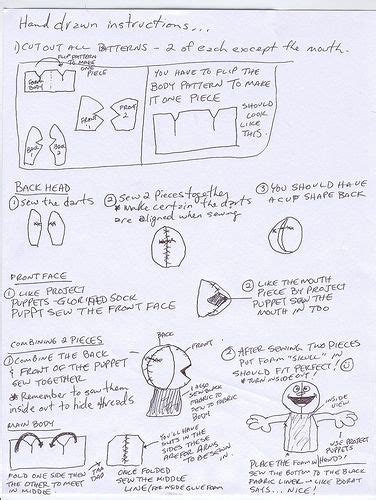 Hand drawn instructions...
1) CUT OUT ALL PATTERNS - 2 of each except the mouth.
FLIP PATTERN
TO MAKE
ONE
PIECE
BODY
FRONT
1
FRONT
2
BACK
1
BACK
2
YOU HAVE TO FLIP THE
BODY PATTERN TO MAKE
IT ONE PIECE
SHOULD
LOOK
LIKE
THIS.
BACK HEAD
① Sew the darts
② Sew 2 pieces together
* Make certain the darts
are aligned when sewing
③ YOU SHOULD HAVE
A CUP SHAPE BACK
FRONT FACE
① LIKE PROJECT
PUPPETS - GLORIFIED SOCK
PUPPET SEW THE FRONT FACE
② LIKE THE MOUTH
PIECE BY PROJECT
PUPPET SEW THE
MOUTH IN TOO
COMBINING 2 PIECES
① COMBINE THE BACK
& FRONT OF THE PUPPET
SEW TOGETHER
* Remember to saw them
inside out to hide threads
BACK
FRONT
ALSO
SEW BLACK
FABRIC TO
SEW TO FABRIC
BODY
② AFTER SEWING TWO PIECES
PUT FOAM "SKULL" IN
SHOULD FIT PERFECT!
* TURN INSIDE OUT!
INSIDE
VIEW
USE PROJECT
PUPPETS
MAIN BODY
FOLD ONE SIDE THEN
THE OTHER TO MEET
IN MIDDLE
TAA
DAA
ONCE FOLDED
SEW THE MIDDLE
LINE
You'll HAVE
SLITS IN THE
SIDES THESE
ARE FOR ARMS
TO BE SEWN
IN.
PLACE THE FOAM IN
SEW THE BOTTOM TO THE BLACK
FABRIC LINER - LIKE BORAT
SAYS... NICE!